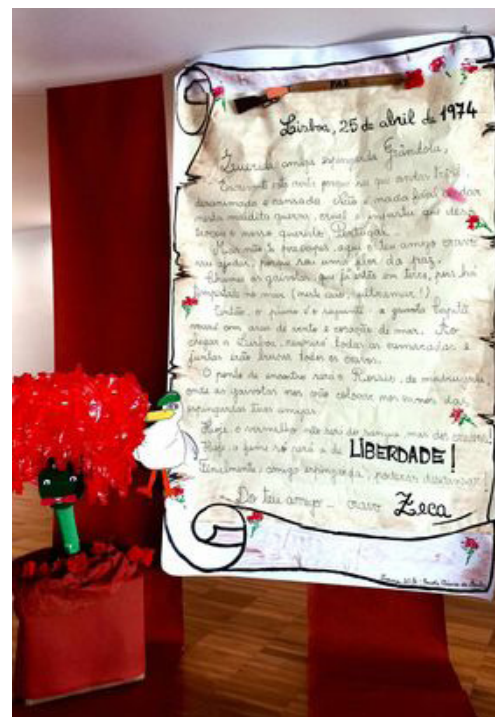 PAZ
Lisboa, 25 de abril de 1974
Querida amiga espingarda Grândola,
Escrevo-te esta carta porque sei que andas triste,
desanimada e cansada. Não é nada fácil andar
nesta maldita guerra, cruel e injusta que
o nosso querido Portugal.
Mas não te preocupes, aqui o teu amigo cravo
vai ajudar, porque sou uma flor da paz.
Chamei as gaivotas, que já estão em terra, pois há
tempestade no mar (neste caso, ultramar!).
Então, o plano é o seguinte: a gaivota Capitã
com asas de vento e coração de mar. Ao
chegar a Lisboa, reunirá todas as camaradas e
juntas irão buscar todos os cravos.
O ponto de encontro será o Rossio, de madrugada,
onde as gaivotas nos vão colocar nos canos das
espingardas tuas amigas.
Hoje, o vermelho não será do sangue, mas dos cravos!
Hoje, a fome só será a de LIBERDADE!
Finalmente, amiga espingarda, poderás descansar!
Do teu amigo cravo Zeca